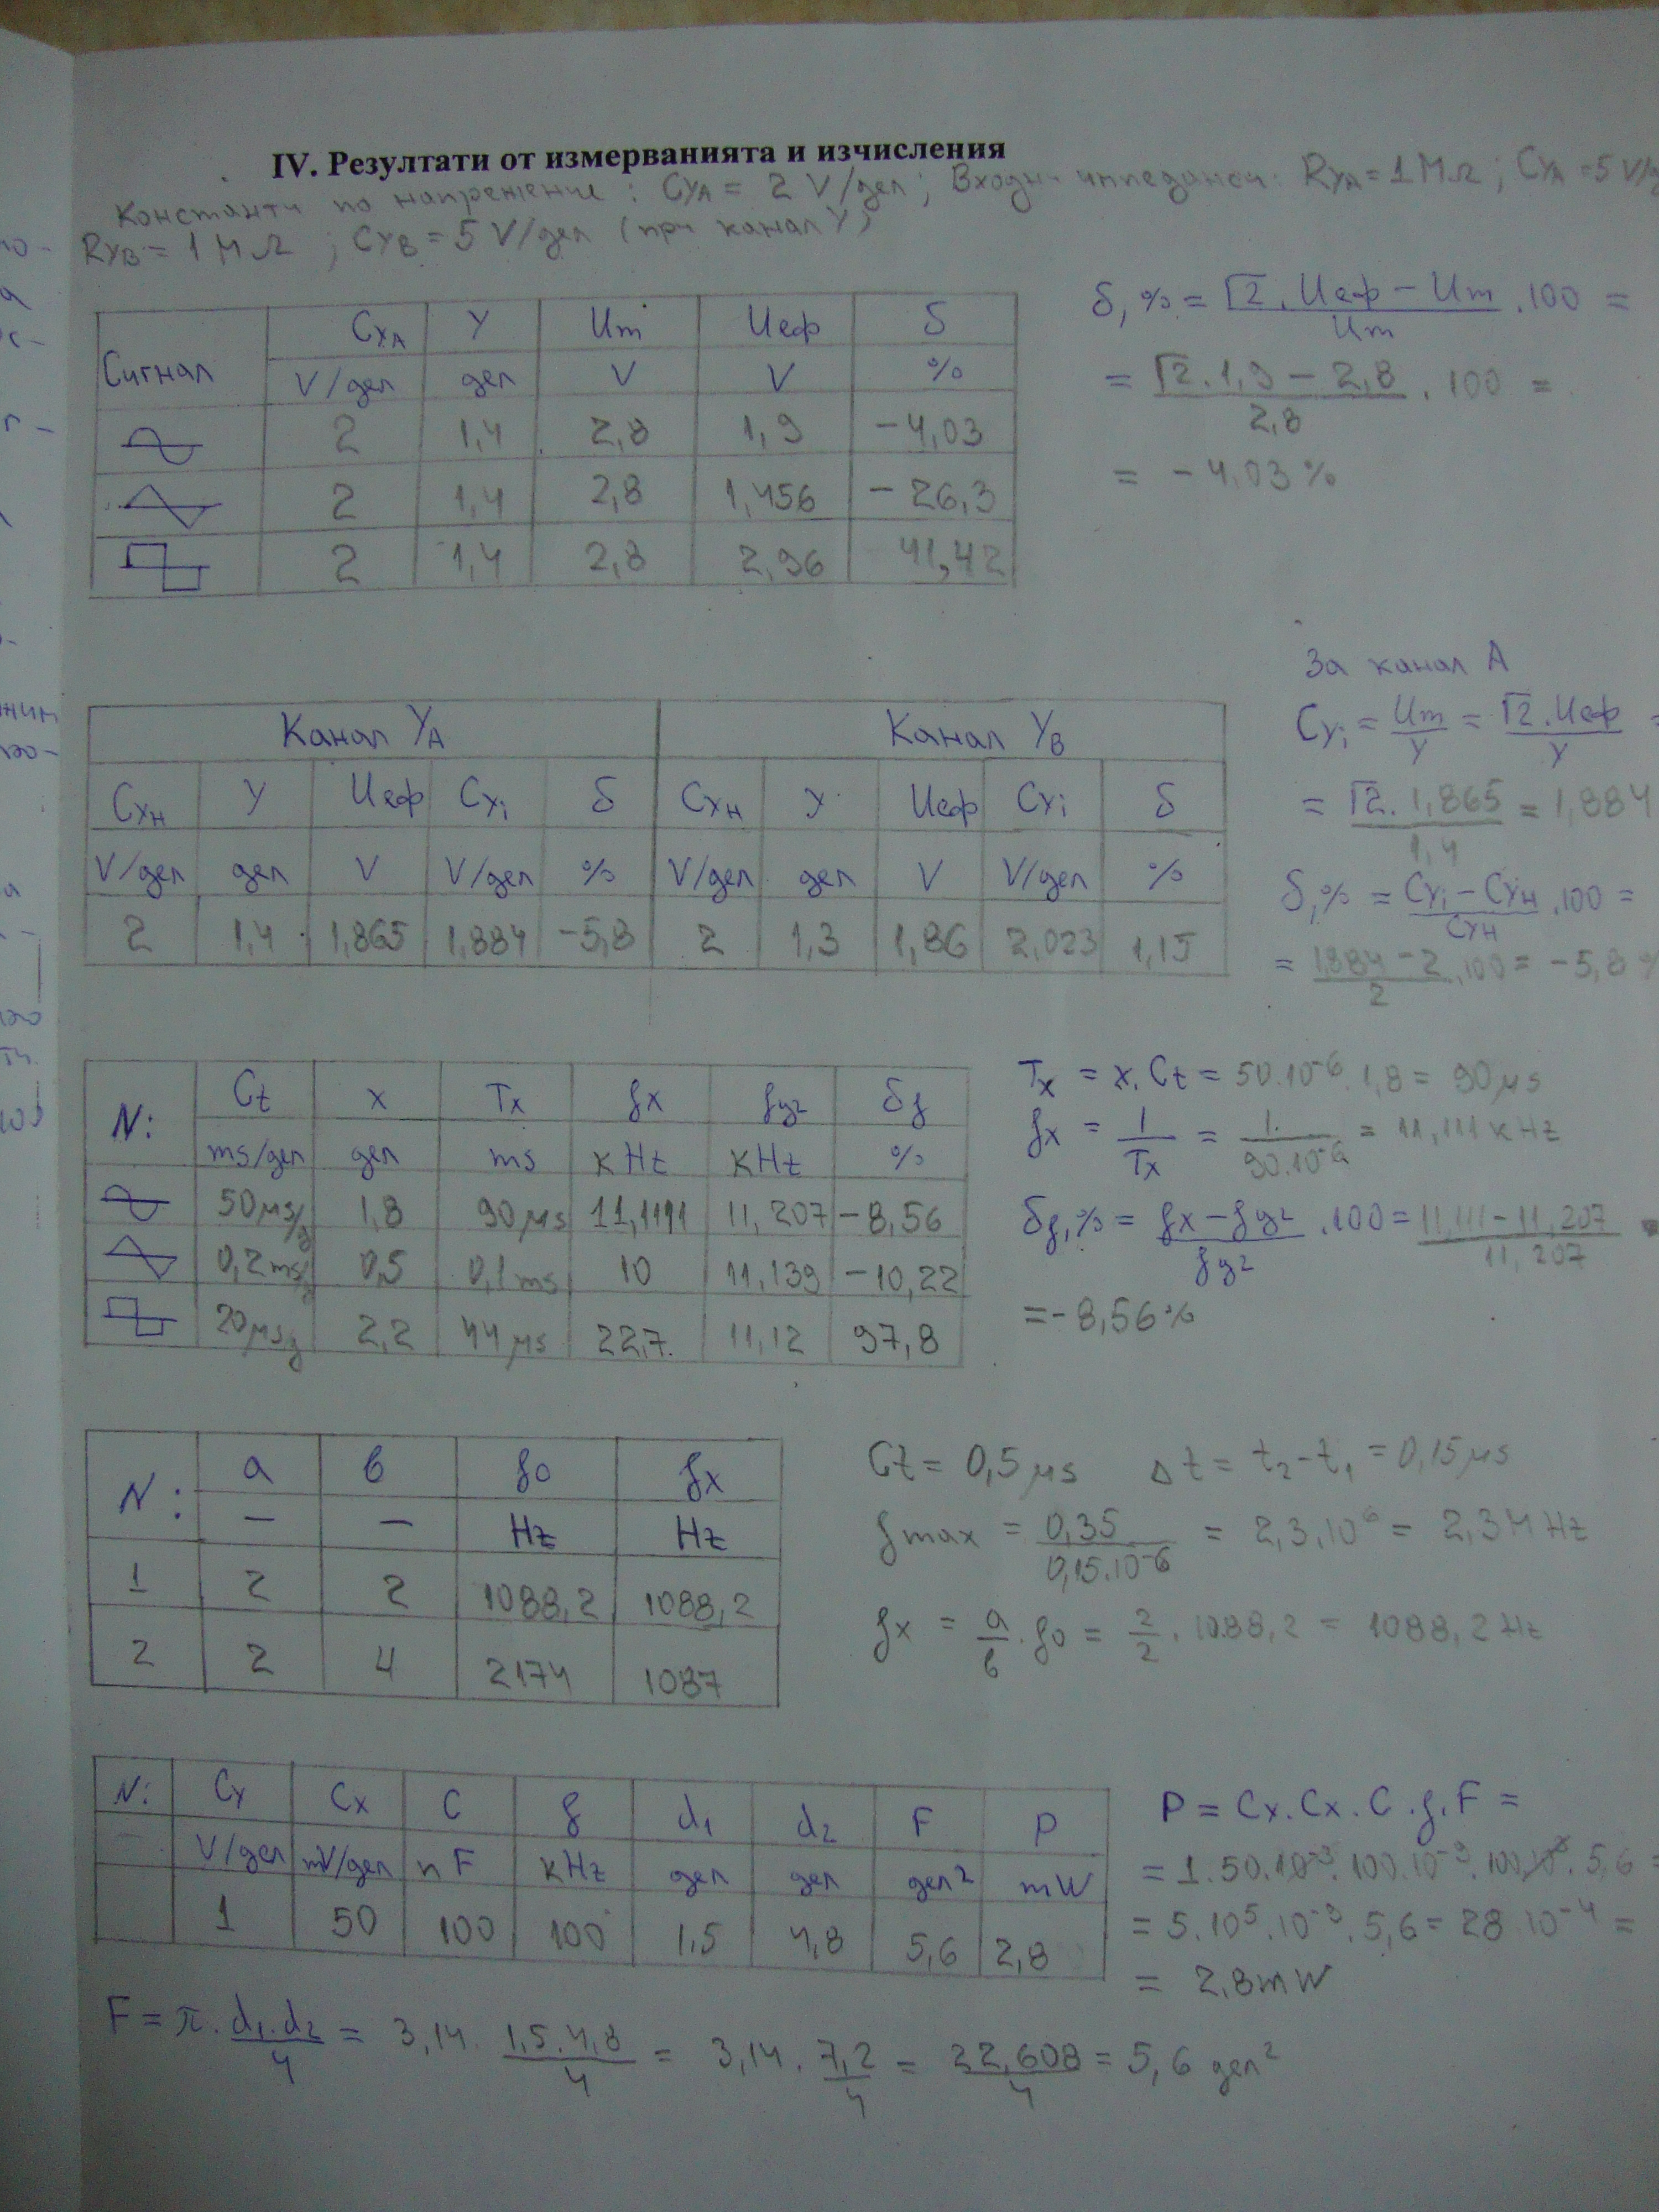 IV. Резултати от измерванията и изчисления
Константи по напрежение: CyA = 2 V/дел; Входни импеданси: RyA = 1 MΩ; CyA = 5 V/
RyB = 1 MΩ ; CyB = 5 V/дел (при канал Y)
Сигнал CxA Y Um Uеф δ
V/дел дел V V %
2 1,4 2,8 1,9 -4,03
2 1,4 2,8 1,456 -26,3
2 1,4 2,8 2,96 41,42
δ,% = √2.Uеф - Um / Um .100 =
= √2.1,9 - 2,8 / 2,8 . 100 =
= -4,03%
Канал YA Канал YB
CxH y Uеф Cyi δ CxH y Uеф Cyi δ
V/дел дел V V/дел % V/дел дел V V/дел %
2 1,4 1,865 1,884 -5,8 2 1,3 1,86 2,023 1,15
За канал A
Cyi = Um / y = √2.Uеф / y =
= √2. 1,865 / 1,4 = 1,884
δ,% = Cyi - CyH / CyH .100 =
= 1,884 - 2 / 2 .100 = -5,8 %
N: Ct x Tx fx fц2 δf
ms/дел дел ms kHz kHz %
50μs/д 1,8 90μs 11,1111 11,207 -8,56
0,2ms/д 0,5 0,1ms 10 11,139 -10,22
20μs д 2,2 44μs 22,7. 11,12 97,8
Tx = x.Ct = 50.10⁻⁶.1,8 = 90μs
fx = 1 / Tx = 1. / 90.10⁻⁶ = 11,111 kHz
δf,% = fx - fц2 / fц2 .100 = 11,111 - 11,207 / 11,207
= -8,56%
N: a в f0 fx
— — Hz Hz
1 2 2 1088,2 1088,2
2 2 4 2174 1087
Ct = 0,5 μs Δt = t₂-t₁ = 0,15μs
fmax = 0,35 / 0,15.10⁻⁶ = 2,3.10⁶ = 2,3 MHz
fx = a / в . f0 = 2 / 2 . 1088,2 = 1088,2 Hz
N: Cy Cx C f d1 d2 F P
— V/дел mV/дел nF kHz дел дел дел² mW
1 50 100 100 1,5 4,8 5,6 2,8
P = Cx.Cx.C.f.F =
= 1.50.10⁻³.100.10⁻⁹.100.10³.5,6 =
= 5.10⁵.10⁻⁹.5,6 = 28 10⁻⁴ =
= 2,8mW
F = π. d1.d2 / 4 = 3,14. 1,5.4,8 / 4 = 3,14. 7,2 / 4 = 22,608 / 4 = 5,6 дел²